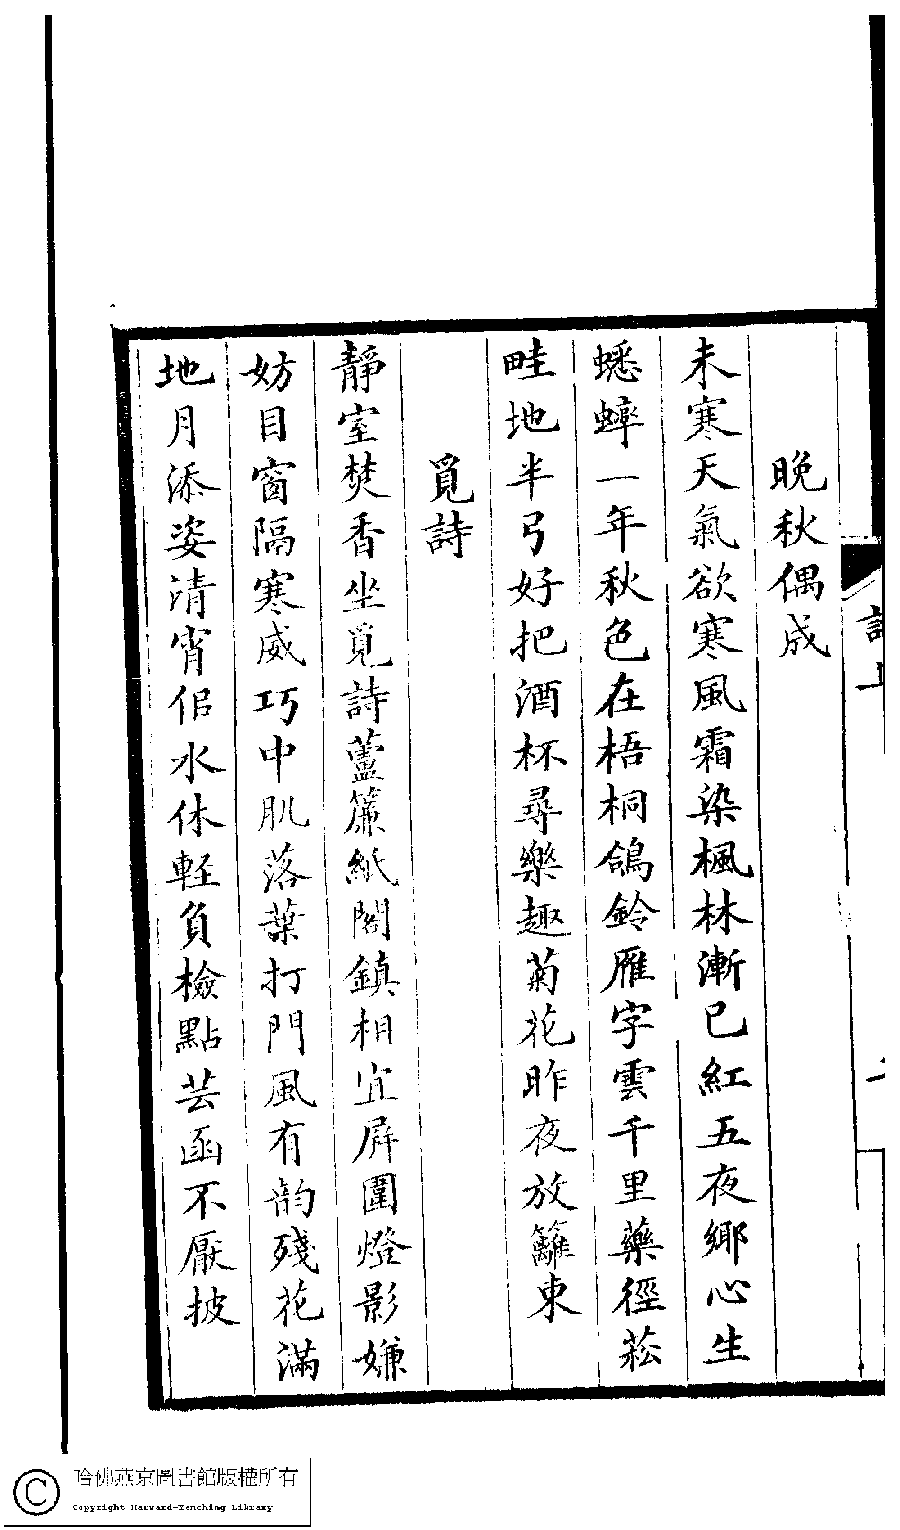 晚秋偶成
未寒天氣欲寒風霜染楓林漸已紅五夜鄉心生
蟋蟀一年秋色在梧桐鴿鈴雁字雲千里藥徑菘
畦地半弓好把酒杯尋樂趣菊花昨夜放籬東
覓詩
靜室焚香坐覓詩蘆簾紙閣鎮相宜屏圍燈影嫌
妨目窗隔寒威巧中肌落葉打門風有韵殘花滿
地月添姿清宵佀水休軽負檢點芸函不厭披
哈佛燕京圖書館版權所有
Copyright Harvard-Yenching Library